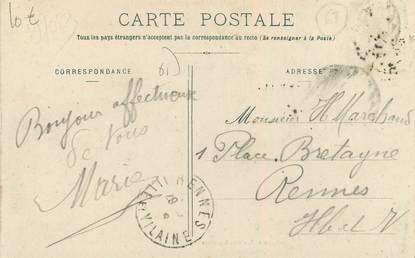 10 €
CARTE POSTALE
Tous les pays étrangers n'acceptent pas la correspondance au recto (Se renseigner à la Poste)
CORRESPONDANCE
ADRESSE
Bonjour affectueux
de Vous
Marie
Monsieur H Marchand
1 Place Bretagne
Rennes
RENNES
VILAINE